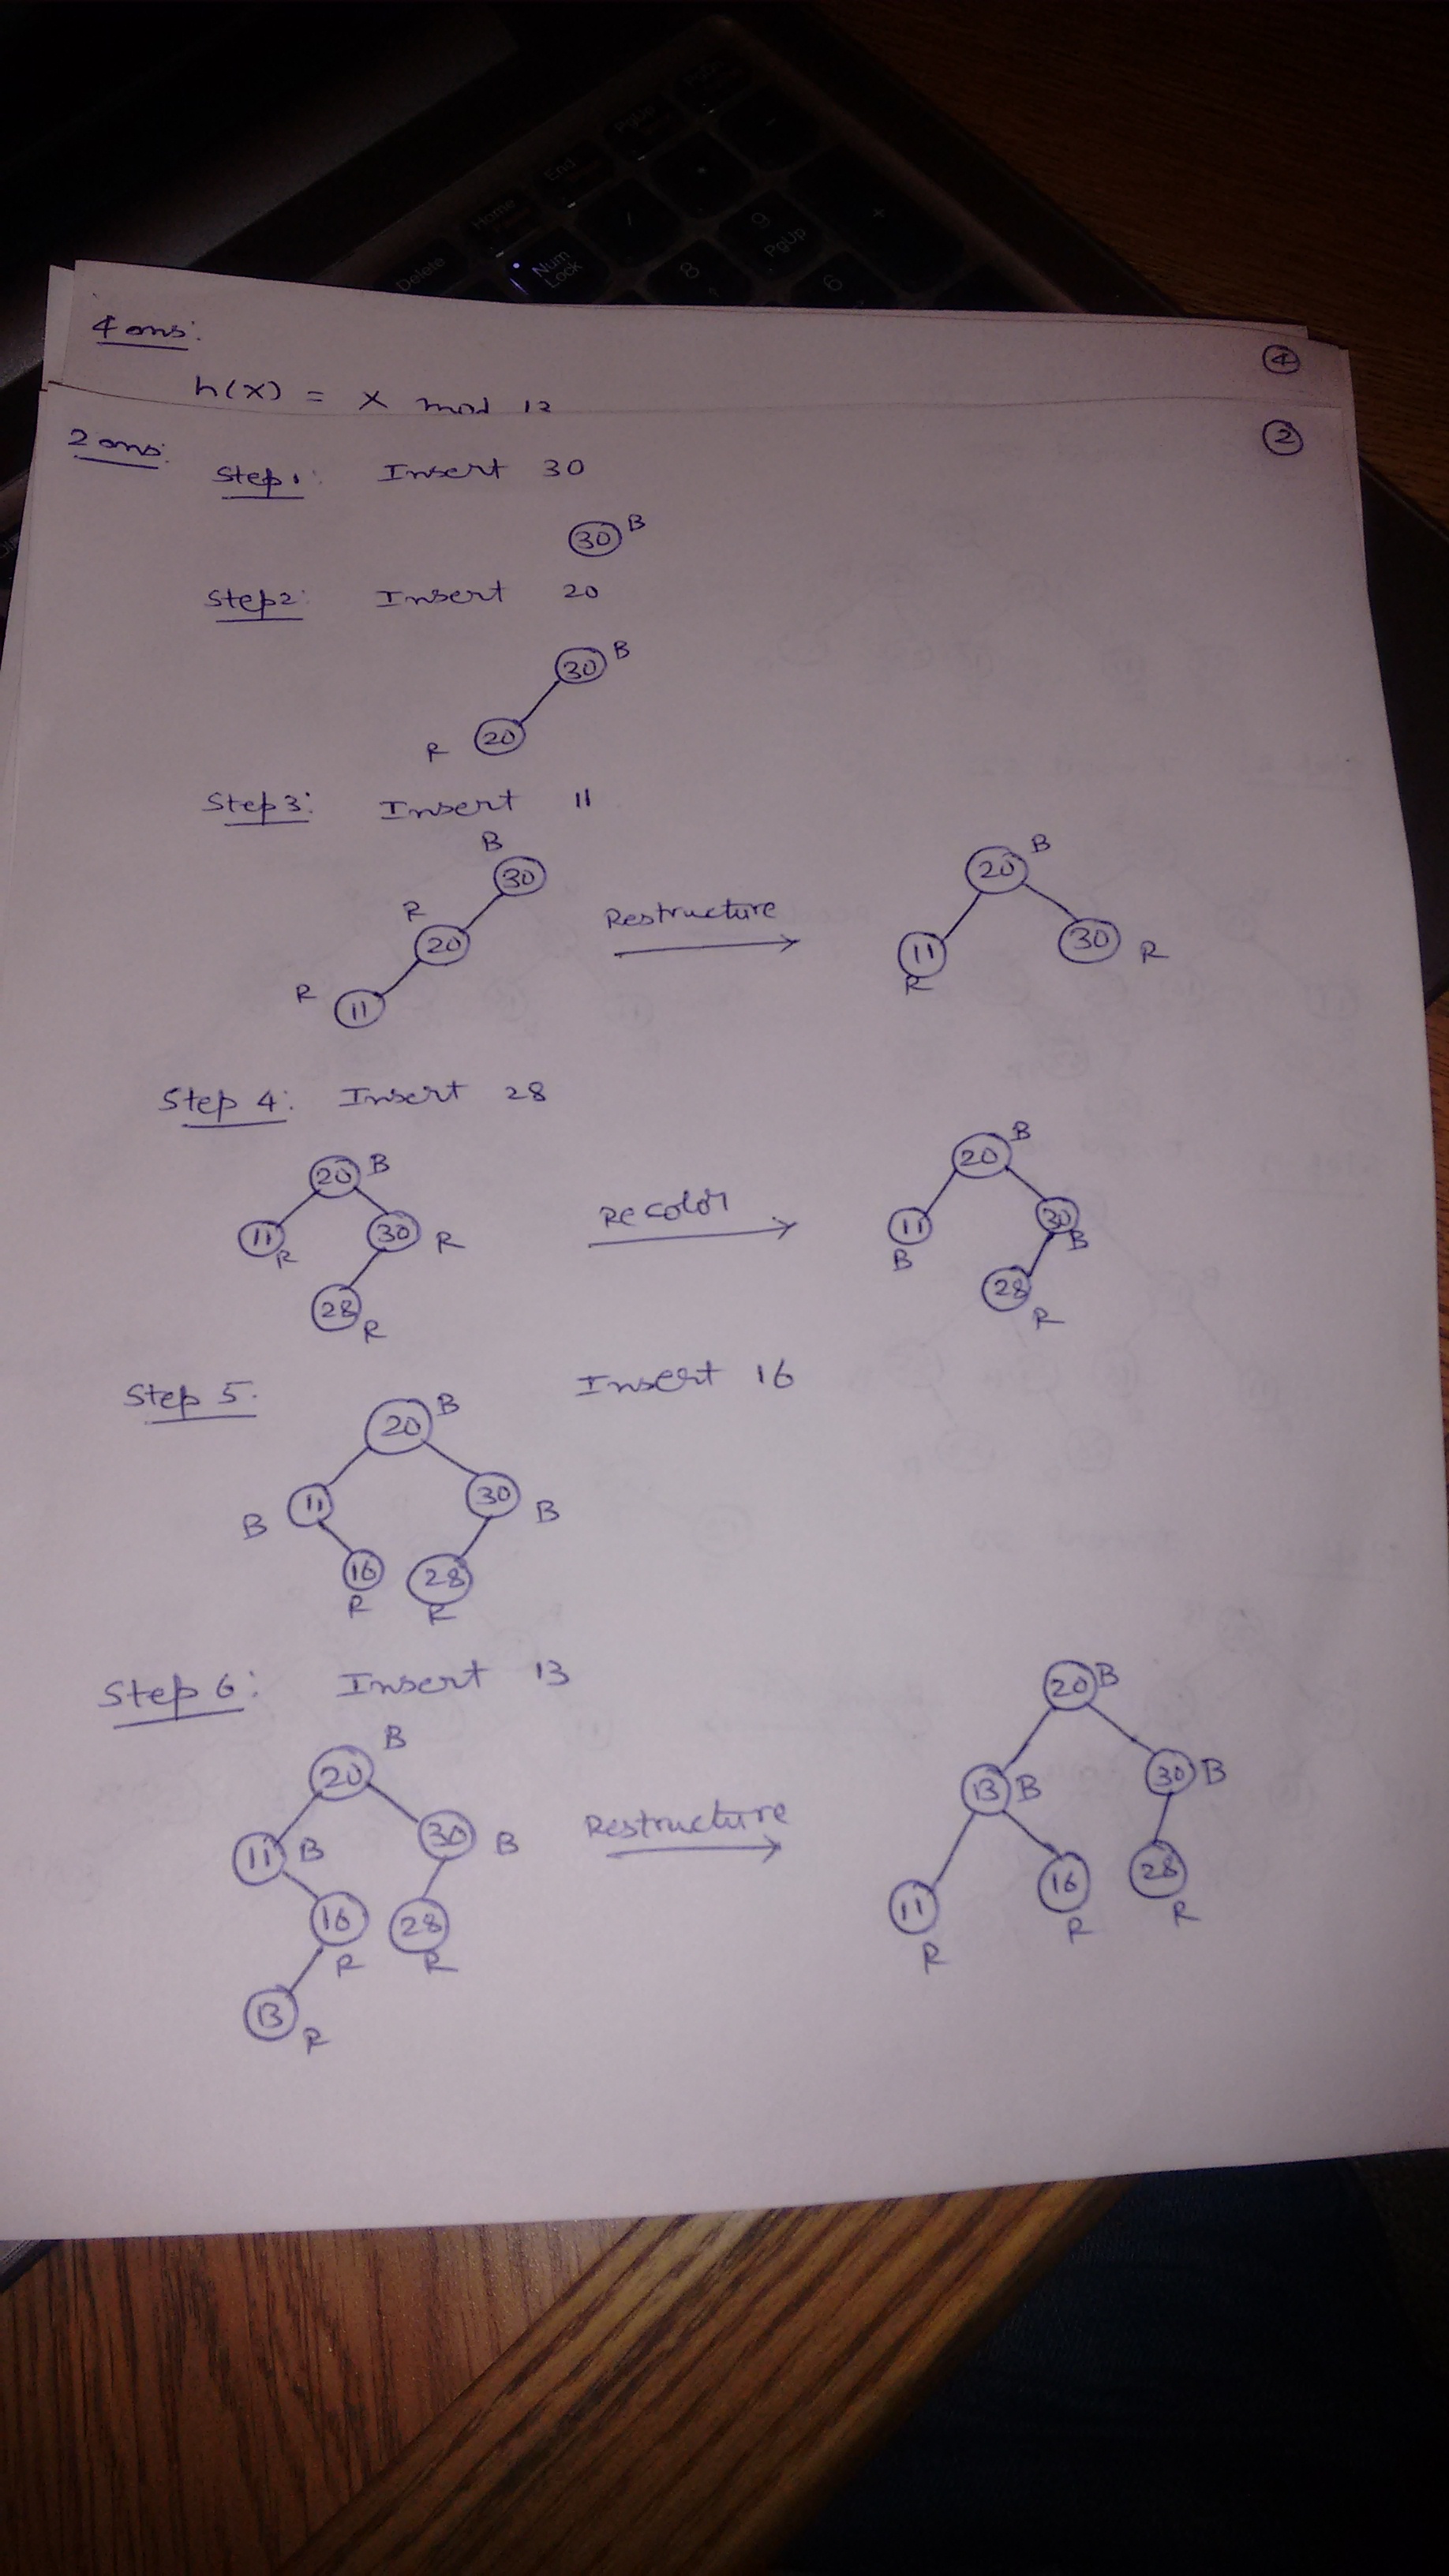 Delete
Home
End
PgUp
Num Lock
/
*
-
+
8
9 PgUp
6
4 ans:
4
h(x) = x mod 12
2 ans:
2
Step 1: Insert 30
30 B
Step 2: Insert 20
30 B
R 20
Step 3: Insert 11
B
30
R
20
R
11
Restructure
20 B
11
R
30 R
Step 4: Insert 28
20 B
11 R
30 R
28 R
Recolor
20 B
11
B
30 B
28 R
Step 5. Insert 16
20 B
B 11
30 B
16
R
28
R
Step 6: Insert 13
B
20
11 B
30 B
16
R
28
R
13 R
Restructure
20 B
13 B
30 B
11
R
16
R
28
R